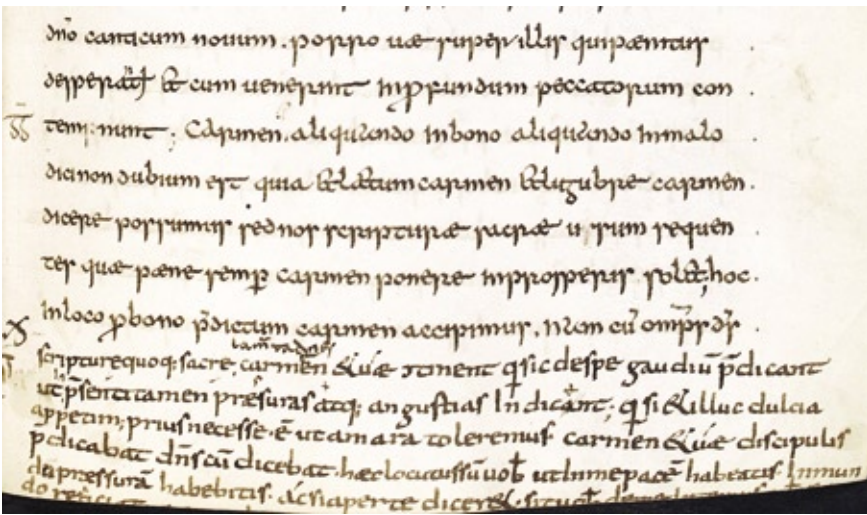 dn̄o canticum nouum . porro uæ super illis qui pænitus
desperat & cum uenerint in profundum peccatorum con
temnunt ; Carmen . aliquando in bono aliquando in malo
dici non dubium est quia & lætum carmen & lugubre carmen .
dicere possumus sed nos scripturæ sacræ usum sequen
tes quæ pæne semp̄ carmen ponere in prosperis sol& ; hoc .
in loco p̄ bono p̄dictum carmen accipimus .
scripture quoq; sacre , carmen & uæ gaudiū p̄dicant
pręsuras atq; angustias Indicant ; q si & illuc dulcia
app&im; prius necesse ē ut amara toleremus carmen & uæ discipulis
p̄dicabat dn̄s cū dicebat . hæc locutus sū uob ut In me pacē habeatis . In mun
do pressurā habebitis . ac si aperte dicer& .